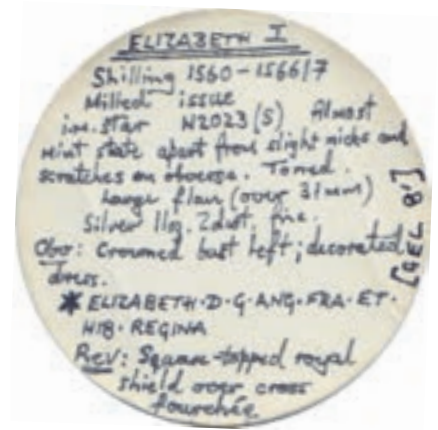 ELIZABETH I
Shilling 1560-1566/7
Milled issue
im. star N2023 (S) Almost
mint state apart from slight nicks and
scratches on obverse. Toned.
Large flan (over 31mm)
Silver 11oz. 2dwt. fine.
Obv: Crowned bust left; decorated
dress.
* ELIZABETH·D·G·ANG·FRA·ET·
HIB·REGINA
Rev: Square-topped royal
shield over cross
fourchée